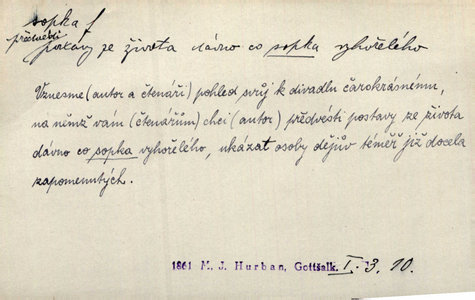 sopka f
předvésti
postavy ze života dávno co sopka vyhořelého
Vznesme (autor a čtenáři) pohled svůj k divadlu čarokrásnému,
na němž vám (čtenářům) chci (autor) předvésti postavy ze života
dávno co sopka vyhořelého, ukázat osoby dějův téměř již docela
zapomenutých.
1861 M. J. Hurban, Gottšalk. I. 3, 10.